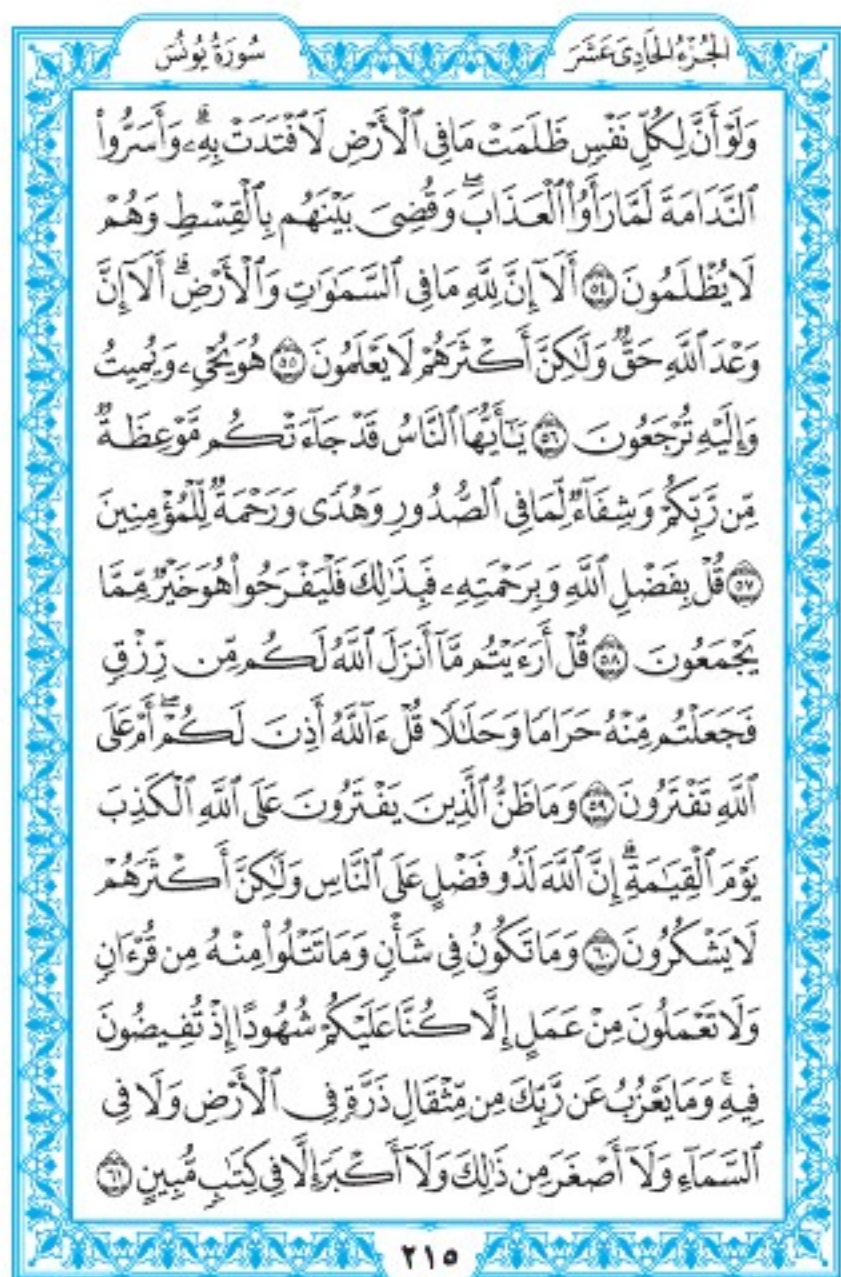 الجُزْءُ الحَادِىَ عَشَرَ
سُورَةُ يُونُسَ
وَلَوْ أَنَّ لِكُلِّ نَفْسٍ ظَلَمَتْ مَا فِى ٱلْأَرْضِ لَٱفْتَدَتْ بِهِۦۗ وَأَسَرُّوا۟
ٱلنَّدَامَةَ لَمَّا رَأَوُا۟ ٱلْعَذَابَۖ وَقُضِىَ بَيْنَهُم بِٱلْقِسْطِ وَهُمْ
لَا يُظْلَمُونَ ٥٤ أَلَآ إِنَّ لِلَّهِ مَا فِى ٱلسَّمَـٰوَٰتِ وَٱلْأَرْضِۗ أَلَآ إِنَّ
وَعْدَ ٱللَّهِ حَقٌّ وَلَـٰكِنَّ أَكْثَرَهُمْ لَا يَعْلَمُونَ ٥٥ هُوَ يُحْىِۦ وَيُمِيتُ
وَإِلَيْهِ تُرْجَعُونَ ٥٦ يَـٰٓأَيُّهَا ٱلنَّاسُ قَدْ جَآءَتْكُم مَّوْعِظَةٌ
مِّن رَّبِّكُمْ وَشِفَآءٌ لِّمَا فِى ٱلصُّدُورِ وَهُدًى وَرَحْمَةٌ لِّلْمُؤْمِنِينَ
٥٧ قُلْ بِفَضْلِ ٱللَّهِ وَبِرَحْمَتِهِۦ فَبِذَٰلِكَ فَلْيَفْرَحُوا۟ هُوَ خَيْرٌ مِّمَّا
يَجْمَعُونَ ٥٨ قُلْ أَرَءَيْتُم مَّآ أَنزَلَ ٱللَّهُ لَكُم مِّن رِّزْقٍ
فَجَعَلْتُم مِّنْهُ حَرَامًا وَحَلَـٰلًا قُلْ ءَآللَّهُ أَذِنَ لَكُمْۖ أَمْ عَلَى
ٱللَّهِ تَفْتَرُونَ ٥٩ وَمَا ظَنُّ ٱلَّذِينَ يَفْتَرُونَ عَلَى ٱللَّهِ ٱلْكَذِبَ
يَوْمَ ٱلْقِيَـٰمَةِۗ إِنَّ ٱللَّهَ لَذُو فَضْلٍ عَلَى ٱلنَّاسِ وَلَـٰكِنَّ أَكْثَرَهُمْ
لَا يَشْكُرُونَ ٦٠ وَمَا تَكُونُ فِى شَأْنٍ وَمَا تَتْلُوا۟ مِنْهُ مِن قُرْءَانٍ
وَلَا تَعْمَلُونَ مِنْ عَمَلٍ إِلَّا كُنَّا عَلَيْكُمْ شُهُودًا إِذْ تُفِيضُونَ
فِيهِۚ وَمَا يَعْزُبُ عَن رَّبِّكَ مِن مِّثْقَالِ ذَرَّةٍ فِى ٱلْأَرْضِ وَلَا فِى
ٱلسَّمَآءِ وَلَآ أَصْغَرَ مِن ذَٰلِكَ وَلَآ أَكْبَرَ إِلَّا فِى كِتَـٰبٍ مُّبِينٍ ٦١
٢١٥